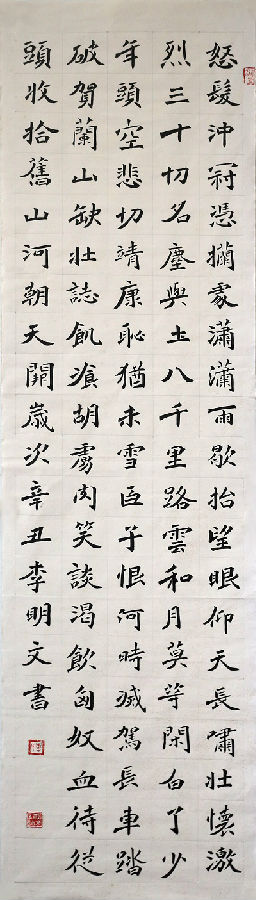 怒髮沖冠憑欄處瀟瀟雨歇抬望眼仰天長嘯壯懷激
烈三十功名塵與土八千里路雲和月莫等閑白了少
年頭空悲切靖康恥猶未雪臣子恨何時滅駕長車踏
破賀蘭山缺壯誌飢飡胡虜肉笑談渴飲匈奴血待從
頭收拾舊山河朝天闕歲次辛丑李明文書